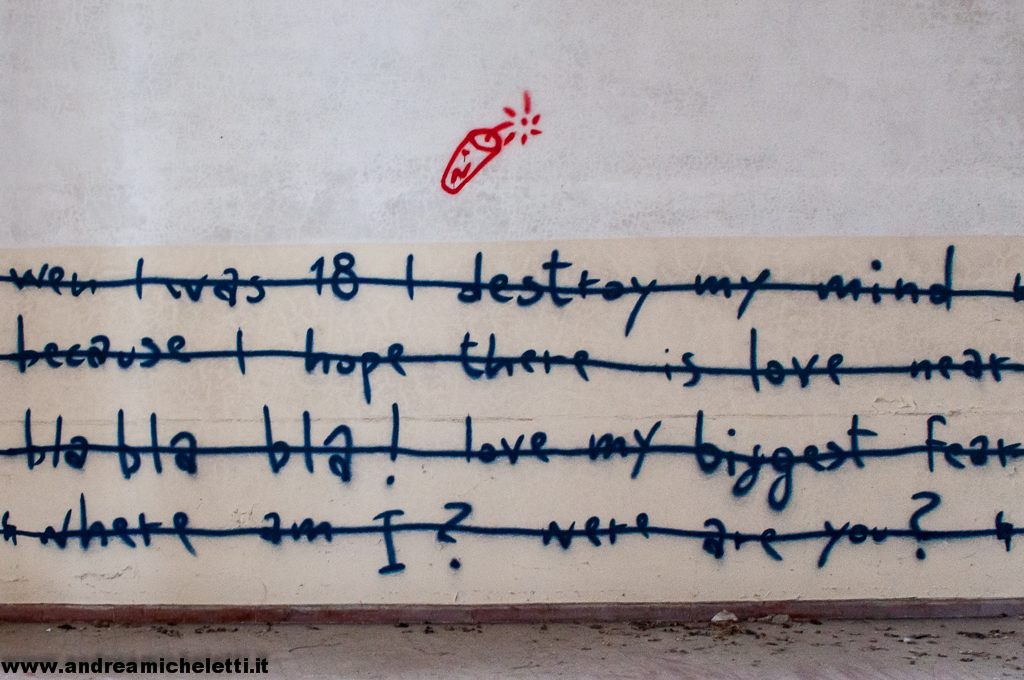 wen I was 18 I destroy my mind
because I hope there is love near
bla bla bla! love my biggest fear
where am I? were are you?
www.andreamicheletti.it